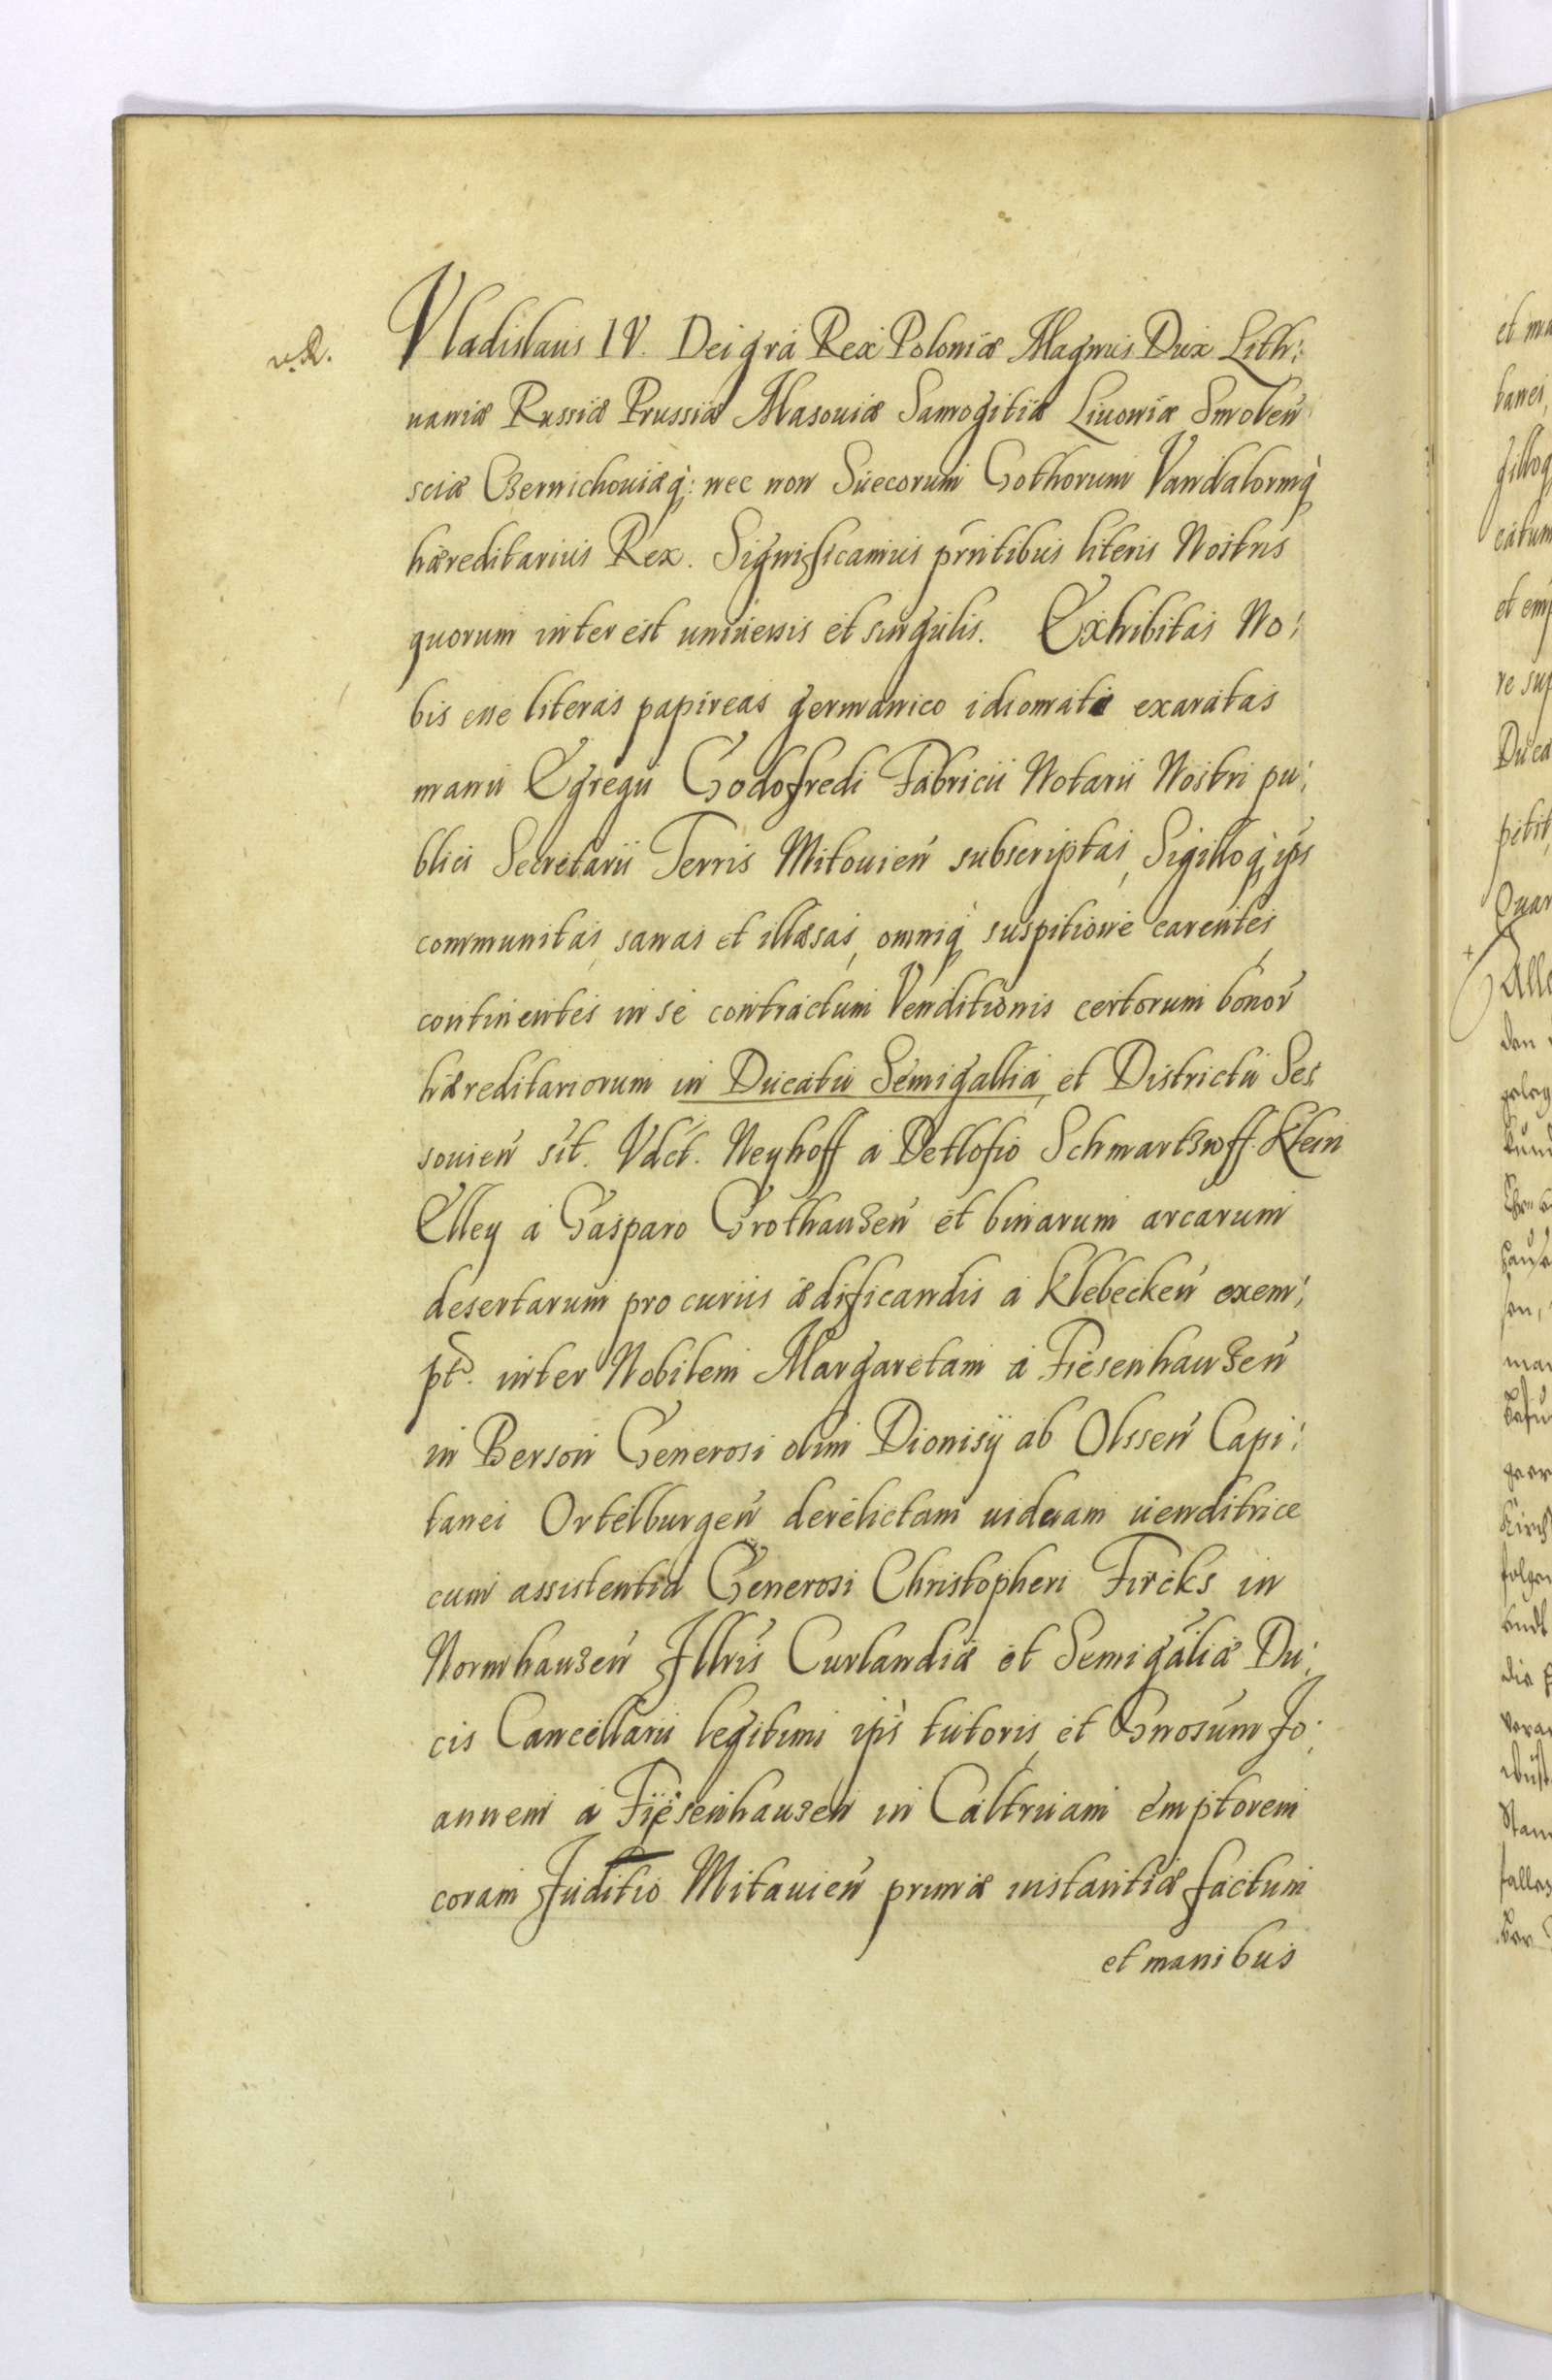 Vladislaus IV. Dei gra Rex Poloniæ Magnus Dux Lith:
uaniæ Russiæ Prussiæ Masouiæ Samogitiæ Liuoniæ Smolen
sciæ Czernichouiæq: nec non Suecorum Gothorum Vandalormq
hæreditarius Rex. Significamus prntibus literis Nostris
quorum interest uniuersis et singulis. Exhibitas No:
bis esse literas papireas germanico idiomate exaratas
manu Egregii Godofredi Fabricii Notarii Nostri pu:
blici Secretarii Terris Mitouien subscriptas, Sigilloq ips
communitas, sanas et illæsas, omniq suspitione carentes,
continentes in se contractum Venditionis certorum bonor
hæreditariorum in Ducatu Semigallia, et Districtu Ses
souien sit. Vdct. Neyhoff a Detlofio Schwartzwoff. Klein
Elley a Gasparo Grothauzen et binarum arcarum
desertarum pro curiis ædificandis a Klebecken exem:
pt. inter Nobilem Margaretam a Fiesenhauzen
in Berson Generosi olim Dionisÿ ab Olssen Capi:
tanei Ortelburgen derelictam uiduam uenditrice
cum assistentia Generosi Christopheri Fircks in
Normhauzen Illris Curlandiæ et Semigaliæ Du:
cis Cancellarii legitimi ips tutoris, et Gnosum Jo:
annem a Fiesenhauzen in Caltruiam emptorem
coram Juditio Mitauien primæ instantiæ factum
et manibus
et ma
tanei,
gilloq
catum
et emp
re sup
Duca
petit,
Quar
Alle
den